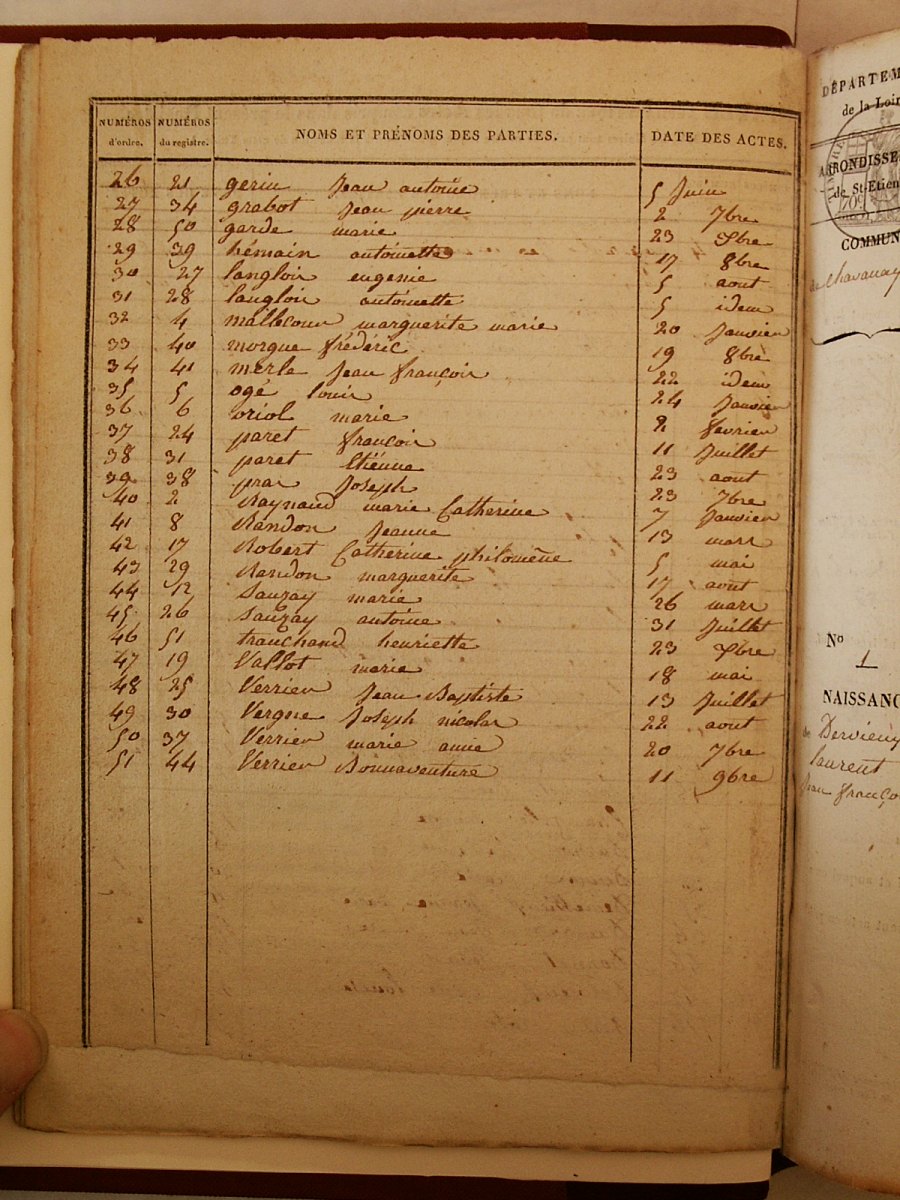 NUMÉROS d'ordre. NUMÉROS du registre. NOMS ET PRÉNOMS DES PARTIES. DATE DES ACTES.
26 21 gerin Jean antoine 5 Juin
27 34 grabot Jean pierre 2 7bre
28 50 garde marie 23 Xbre
29 39 hémain antoinette 17 8bre
30 27 langlois eugenie 5 aout
31 28 langlois antoinette 5 idem
32 4 mallecour marguerite marie 20 Janvier
33 40 morgue frédéric 19 8bre
34 41 merle Jean françois 22 idem
35 5 ogé louis 24 Janvier
36 6 oriol marie 2 fevrier
37 24 paret françois 11 Juillet
38 31 paret Etienne 23 aout
39 38 pras Joseph 23 7bre
40 2 Raynaud marie Catherine 7 Janvier
41 8 Randon Jeanne 13 mars
42 17 Robert Catherine philomène 5 mai
43 29 Randon marguerite 17 aout
44 12 Sauzay marie 26 mars
45 26 Sauzay antoine 31 Juillet
46 51 tranchand henriette 23 Xbre
47 19 Vallot marie 18 mai
48 25 Verrier Jean Baptiste 13 Juillet
49 30 Vergne Joseph nicolas 22 aout
50 37 Verrier marie anne 20 7bre
51 44 Verrier Bonnaventure 11 9bre
DÉPARTEM
de la Loir
ARRONDISSE
de St-Etien
COMMUN
de Chavanay
No 1
NAISSANC
de Dervieux
laurent
Jean franço